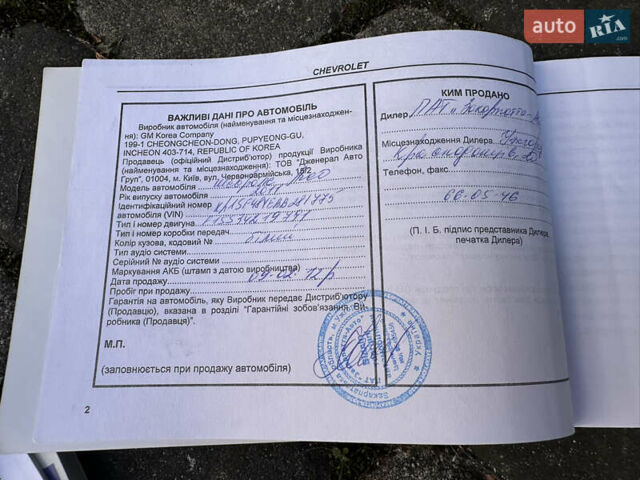 auto RIA .com
CHEVROLET
ВАЖЛИВІ ДАНІ ПРО АВТОМОБІЛЬ
Виробник автомобіля (найменування та місцезнаходжен-
ня): GM Korea Company
199-1 CHEONGCHEON-DONG, PUPYEONG-GU,
INCHEON 403-714, REPUBLIC OF KOREA
Продавець (офіційний Дистриб'ютор) продукції Виробника
(найменування та місцезнаходження): ТОВ "Дженерал Авто
Груп", 01004, м. Київ, вул. Червоноармійська, 15/2
Модель автомобіля Шевроле
Рік випуску автомобіля 2011
Ідентифікаційний номер
автомобіля (VIN)
Тип і номер двигуна
Тип і номер коробки передач
Колір кузова, кодовий № білий
Тип аудіо системи
Серійний № аудіо системи
Маркування АКБ (штамп з датою виробництва)
Дата продажу 09.02.12р
Пробіг при продажу
Гарантія на автомобіль, яку Виробник передає Дистриб'ютору
(Продавцю), вказана в розділі "Гарантійні зобов'язання. Ви-
робника (Продавця)".
М.П.
(заповнюється при продажу автомобіля)
2
КИМ ПРОДАНО
Дилер ПАТ
Місцезнаходження Дилера
Телефон, факс
66-05-46
(П. І. Б. підпис представника Дилера,
печатка Дилера)